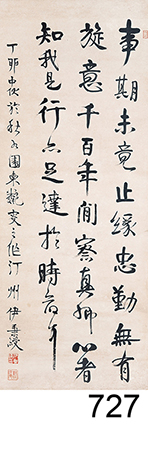 事期未竟止緣忠勤無有
旋意千百年間察真卿心者
知我是行亦足達於時命耳
丁卯中秋於秋水園東軒 汀州伊秉綬
727